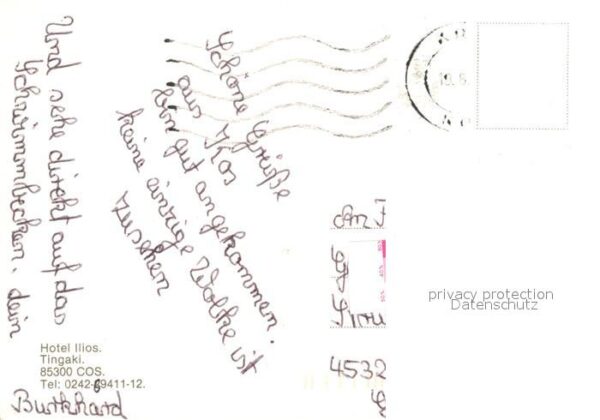 Schöne Grüße
aus Kos
bin gut angekommen.
keine einzige Wolke ist
zusehen
Und sehe direkt auf das
Schwimmbecken. dein
Burkhard
Hotel Ilios.
Tingaki.
85300 COS.
Tel: 0242-69411-12.
An
4532
privacy protection
Datenschutz